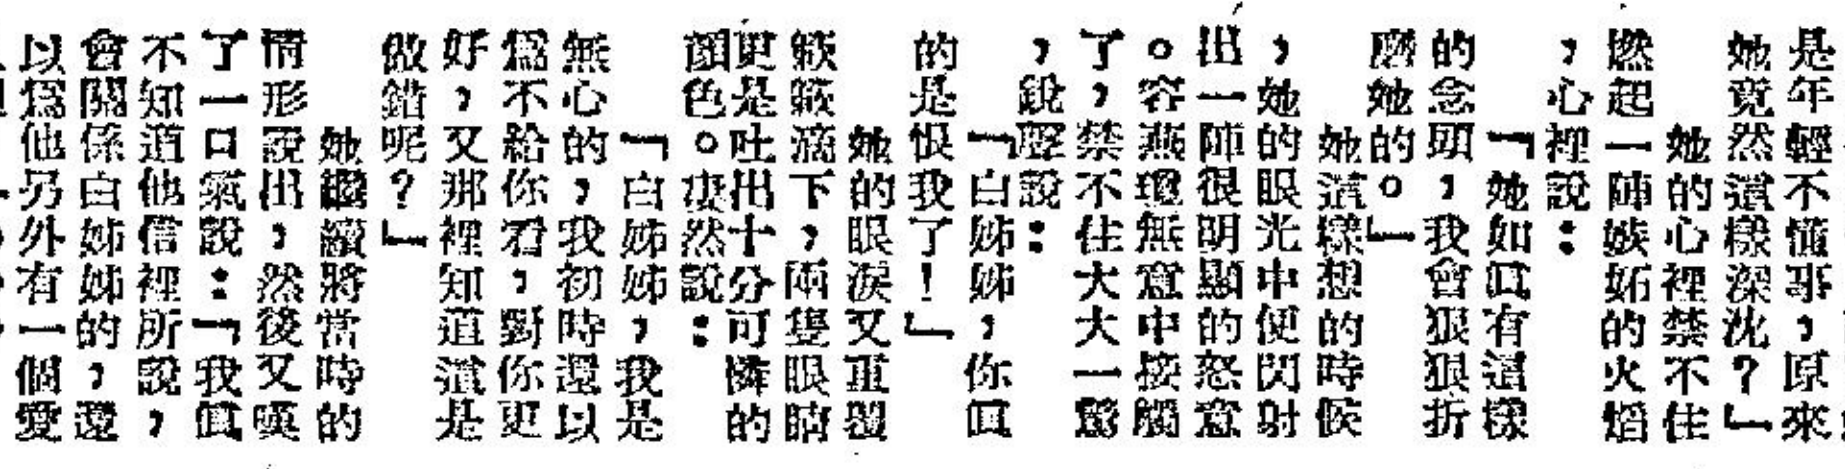 是年輕不懂事，原來
她竟然這樣深沈？」
她的心裡禁不住
燃起一陣嫉妬的火焰
，心裡說：
「她如眞有這樣
的念頭，我會狠狠折
磨她的。」
她這樣想的時候
，她的眼光中便閃射
出一陣很明顯的怒意
。容燕瓊無意中接觸
了，禁不住大大一驚
，銳聲說：
「白姊姊，你眞
的是恨我了！」
她的眼淚又重覆
簌簌滴下，兩隻眼睛
更是吐出十分可憐的
顏色。凄然說：
「白姊姊，我是
無心的，我初時還以
爲不給你看，對你更
好，又那裡知道這是
做錯呢？」
她繼續將當時的
情形說出，然後又嘆
了一口氣說：「我眞
不知道他信裡所說，
會關係白姊姊的，還
以爲他另外有一個愛